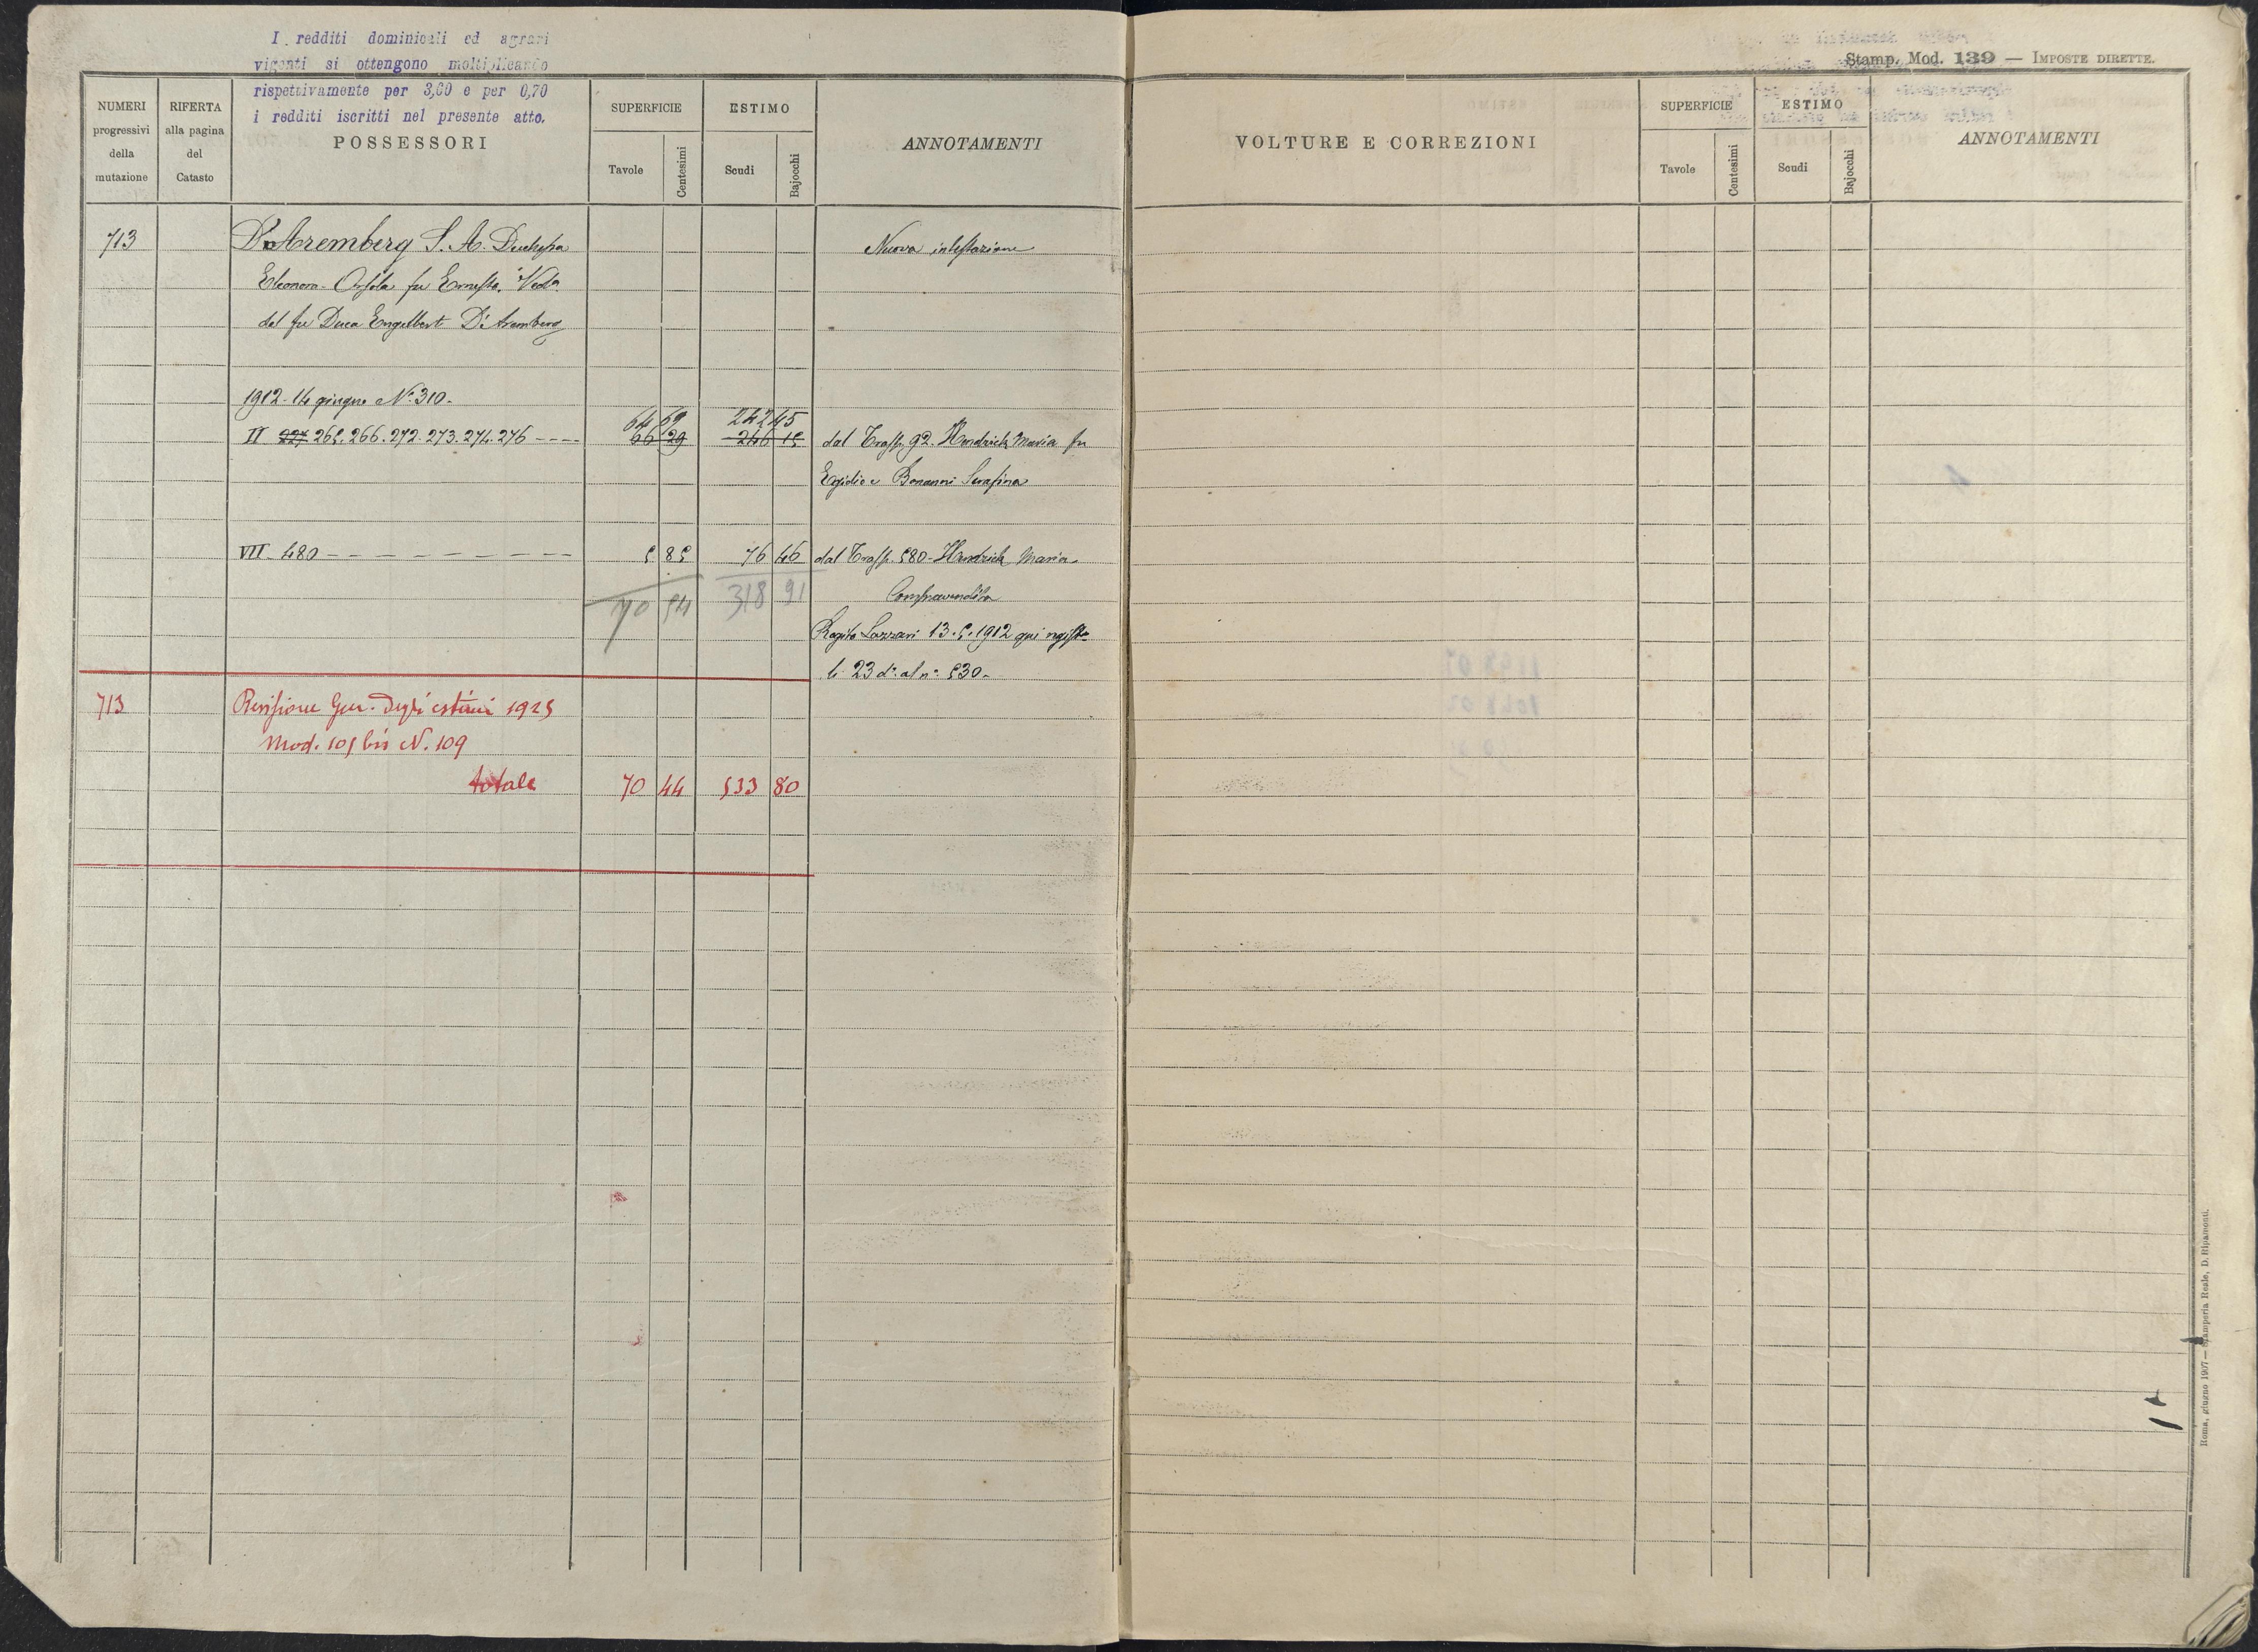 I redditi dominicali ed agrari
vigenti si ottengono moltiplicando
rispettivamente per 3,60 e per 0,70
i redditi iscritti nel presente atto.
Stamp. Mod. 139 — IMPOSTE DIRETTE.
NUMERI
progressivi
della
mutazione
RIFERTA
alla pagina
del
Catasto
POSSESSORI
SUPERFICIE
Tavole
Centesimi
ESTIMO
Scudi
Bajocchi
ANNOTAMENTI
VOLTURE E CORREZIONI
SUPERFICIE
Tavole
Centesimi
ESTIMO
Scudi
Bajocchi
ANNOTAMENTI
713 D'Aremberg S. A. Duchessa Nuova intestazione
Eleonora - Orsola fu Ernesto Veda
del fu Duca Engelbert D'Aremberg
1912 - 14 giugno N. 310 -
64 69 242 45
II 227 265. 266. 272. 273. 274. 276 - - - - 66 29 246 15 dal Trasp. 92. Hendrich Maria fu
Egidio e Bonanni Serafina
VII - 480 - - - - - - - - 5 85 76 46 dal Trasp. 580 - Hendrich Maria -
70 54 318 91 Compravendita
Rogito Lazzari 13.5.1912 qui regist.
li 23 do. al no. 530 -
713 Revisione Gen. degli estimi 1925
Mod. 105 bis N. 109
totale 70 44 533 80
Roma, giugno 1907 — Stamperia Reale, D. Ripamonti.